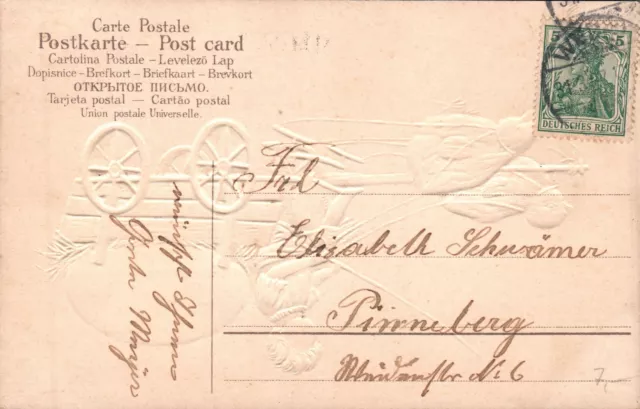 Carte Postale
Postkarte – Post card
Cartolina Postale – Levelező Lap
Dopisnice – Brefkort – Briefkaart – Brevkort
ОТКРЫТОЕ ПИСЬМО.
Tarjeta postal – Cartão postal
Union postale Universelle.
5 5
DEUTSCHES REICH
Frl
Elisabeth Schwämer
Pinneberg
Weidenstr No 6
wünscht Ihnen
Meyer
7,-